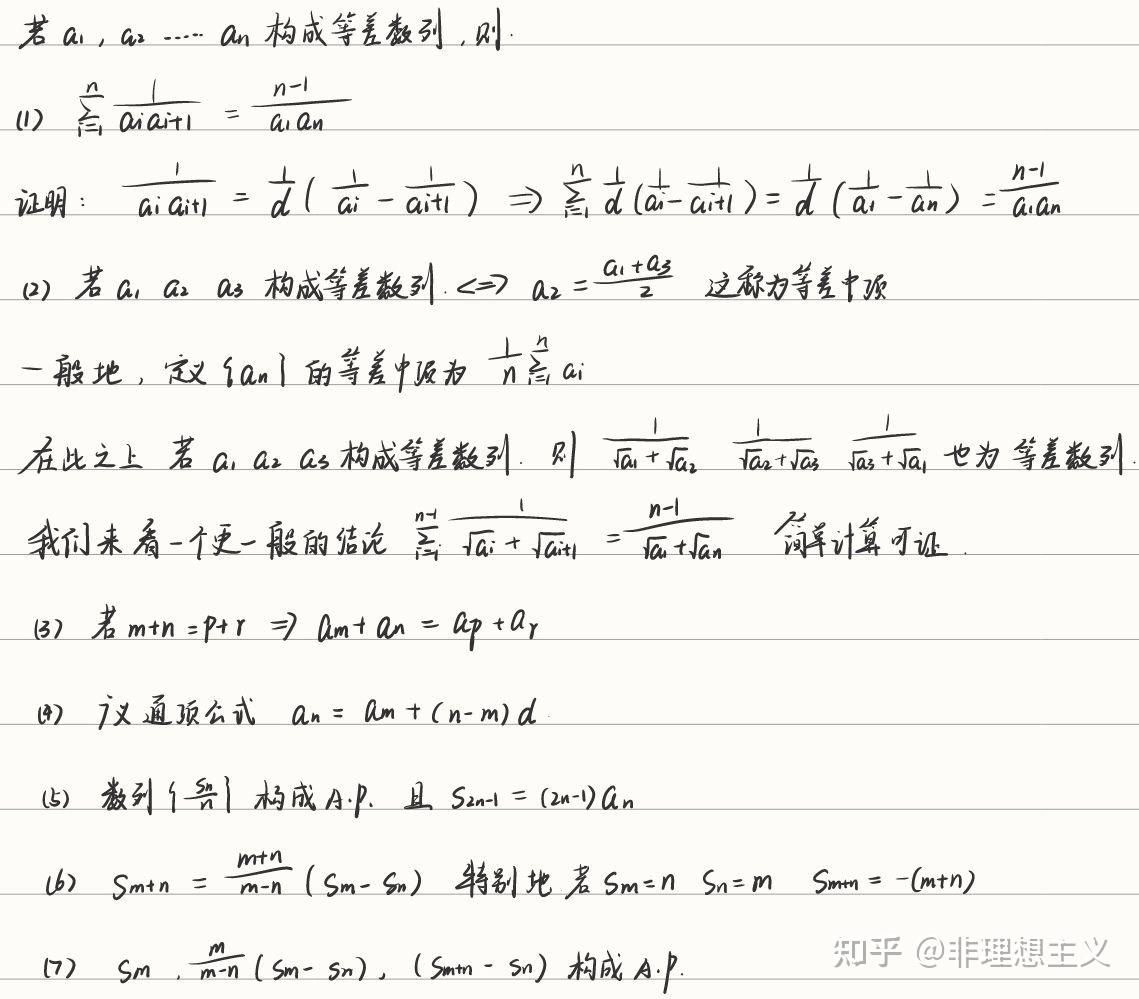 若 a₁, a₂ ····· aₙ 构成等差数列,则.
(1) $\sum_{i=1}^{n} \frac{1}{a_i a_{i+1}} = \frac{n-1}{a_1 a_n}$
证明: $\frac{1}{a_i a_{i+1}} = \frac{1}{d}\left(\frac{1}{a_i} - \frac{1}{a_{i+1}}\right) \Rightarrow \sum_{i=1}^{n} \frac{1}{d}\left(\frac{1}{a_i} - \frac{1}{a_{i+1}}\right) = \frac{1}{d}\left(\frac{1}{a_1} - \frac{1}{a_n}\right) = \frac{n-1}{a_1 a_n}$
(2) 若 a₁ a₂ a₃ 构成等差数列. $\Leftrightarrow a_2 = \frac{a_1 + a_3}{2}$ 这称为等差中项
一般地, 定义 {aₙ} 的等差中项为 $\frac{1}{n} \sum_{i=1}^{n} a_i$
在此之上 若 a₁ a₂ a₃ 构成等差数列. 则 $\frac{1}{\sqrt{a_1}+\sqrt{a_2}}$ $\frac{1}{\sqrt{a_2}+\sqrt{a_3}}$ $\frac{1}{\sqrt{a_3}+\sqrt{a_1}}$ 也为 等差数列.
我们来看一个更一般的结论 $\sum_{i=1}^{n-1} \frac{1}{\sqrt{a_i}+\sqrt{a_{i+1}}} = \frac{n-1}{\sqrt{a_1}+\sqrt{a_n}}$ 简单计算可证.
(3) 若 m+n=p+r $\Rightarrow a_m + a_n = a_p + a_r$
(4) 广义通项公式 $a_n = a_m + (n-m)d$.
(5) 数列 $\{\frac{S_n}{n}\}$ 构成 A.P. 且 $S_{2n-1} = (2n-1)a_n$
(6) $S_{m+n} = \frac{m+n}{m-n}(S_m - S_n)$ 特别地 若 $S_m = n$ $S_n = m$ $S_{m+n} = -(m+n)$
(7) $S_m , \frac{m}{m-n}(S_m - S_n), (S_{m+n} - S_n)$ 构成 A.P.
知乎 @非理想主义